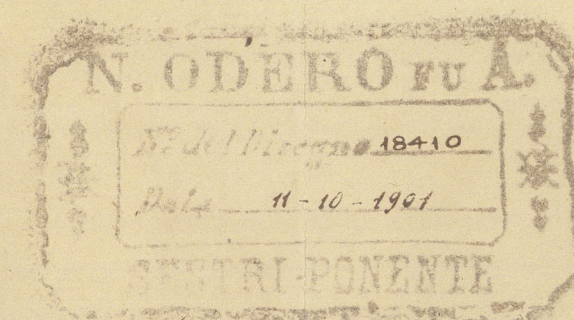 N. ODERO FU A.
N.º del Disegno 18410
Data 11-10-1901
SESTRI-PONENTE